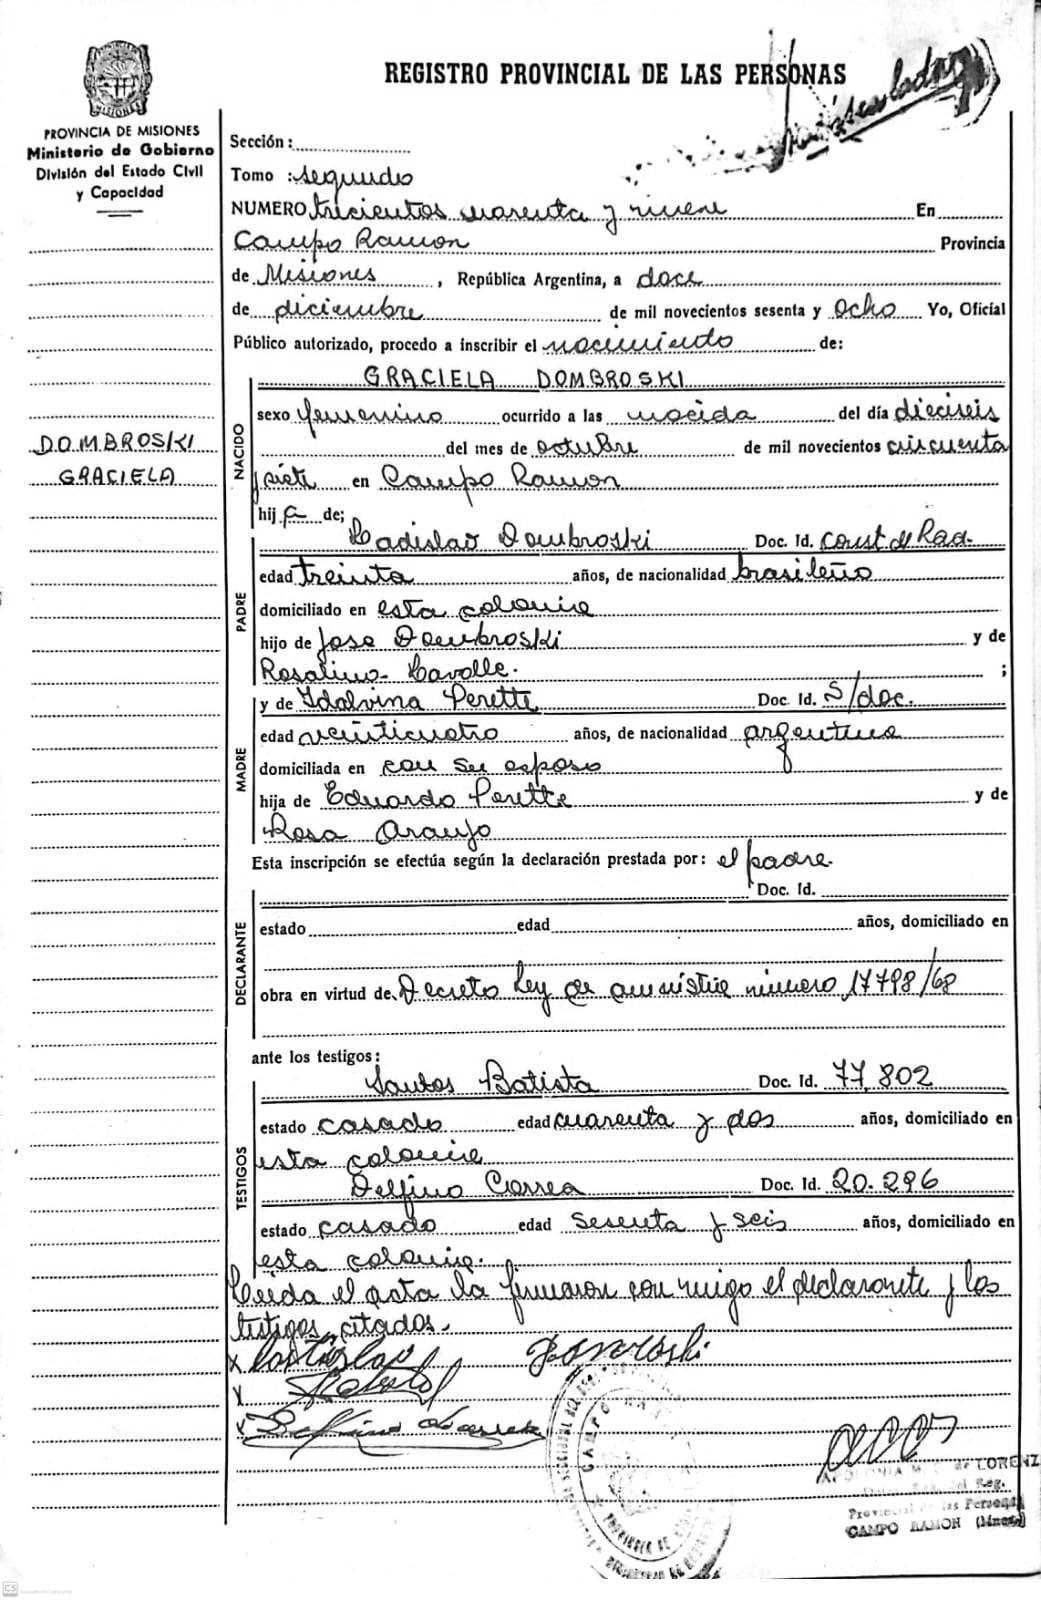 REGISTRO PROVINCIAL DE LAS PERSONAS
PROVINCIA DE MISIONES
Ministerio de Gobierno
División del Estado Civil
y Capacidad
Sección:
Tomo: segundo
NUMERO trecientos cuarenta y nueve En
Campo Ramon Provincia
de Misiones, República Argentina, a doce
de diciembre de mil novecientos sesenta y ocho Yo, Oficial
Público autorizado, procedo a inscribir el nacimiento de:
DOMBROSKI
GRACIELA
NACIDO
GRACIELA DOMBROSKI
sexo femenino ocurrido a las nacida del día dieciseis
del mes de octubre de mil novecientos cincuenta
siete en Campo Ramon
hij a de;
PADRE
Ladislao Dombroski Doc. Id. const de Rad.
edad treinta años, de nacionalidad brasileño
domiciliado en esta colonia
hijo de Jose Dombroski y de
Rosalina Lavalle. ;
MADRE
y de Idalvina Perette Doc. Id. S/doc.
edad veinticuatro años, de nacionalidad argentina
domiciliada en con su esposo
hija de Eduardo Perette y de
Rosa Araujo
Esta inscripción se efectúa según la declaración prestada por: el padre.
DECLARANTE
Doc. Id.
estado edad años, domiciliado en
obra en virtud de Decreto Ley de amnistia número 17798/68
ante los testigos:
TESTIGOS
Santos Batista Doc. Id. 77.802
estado casado edad cuarenta y dos años, domiciliado en
esta colonia
Delfino Correa Doc. Id. 20.296
estado casado edad sesenta y seis años, domiciliado en
esta colonia.
Leída el acta la firmaron con migo el declarante y los
testigos citados.
x Ladislao Domroski
x
x Delfino Correa
CAMPO RA
LORENZ
del Reg.
Provincial de las Personas
CAMPO RAMON (Mnes.)
CS